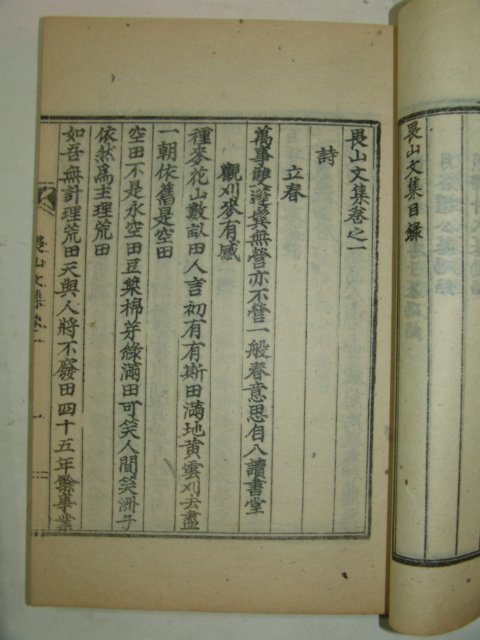 畏山文集目錄
畏山文集卷之一
詩
立春
萬事雖鬢無營亦不營一般春意思自入讀書堂
觀刈麥有感
種麥花山數畝田人言初有有斯田滿地黃雲刈去盡
一朝依舊是空田
空田不是永空田豆菜棉芽綠滿田可笑人間笑洲子
依然爲主理荒田
如吾無計理荒田天與人將不廢田四十五年餘事業
畏山文集卷一